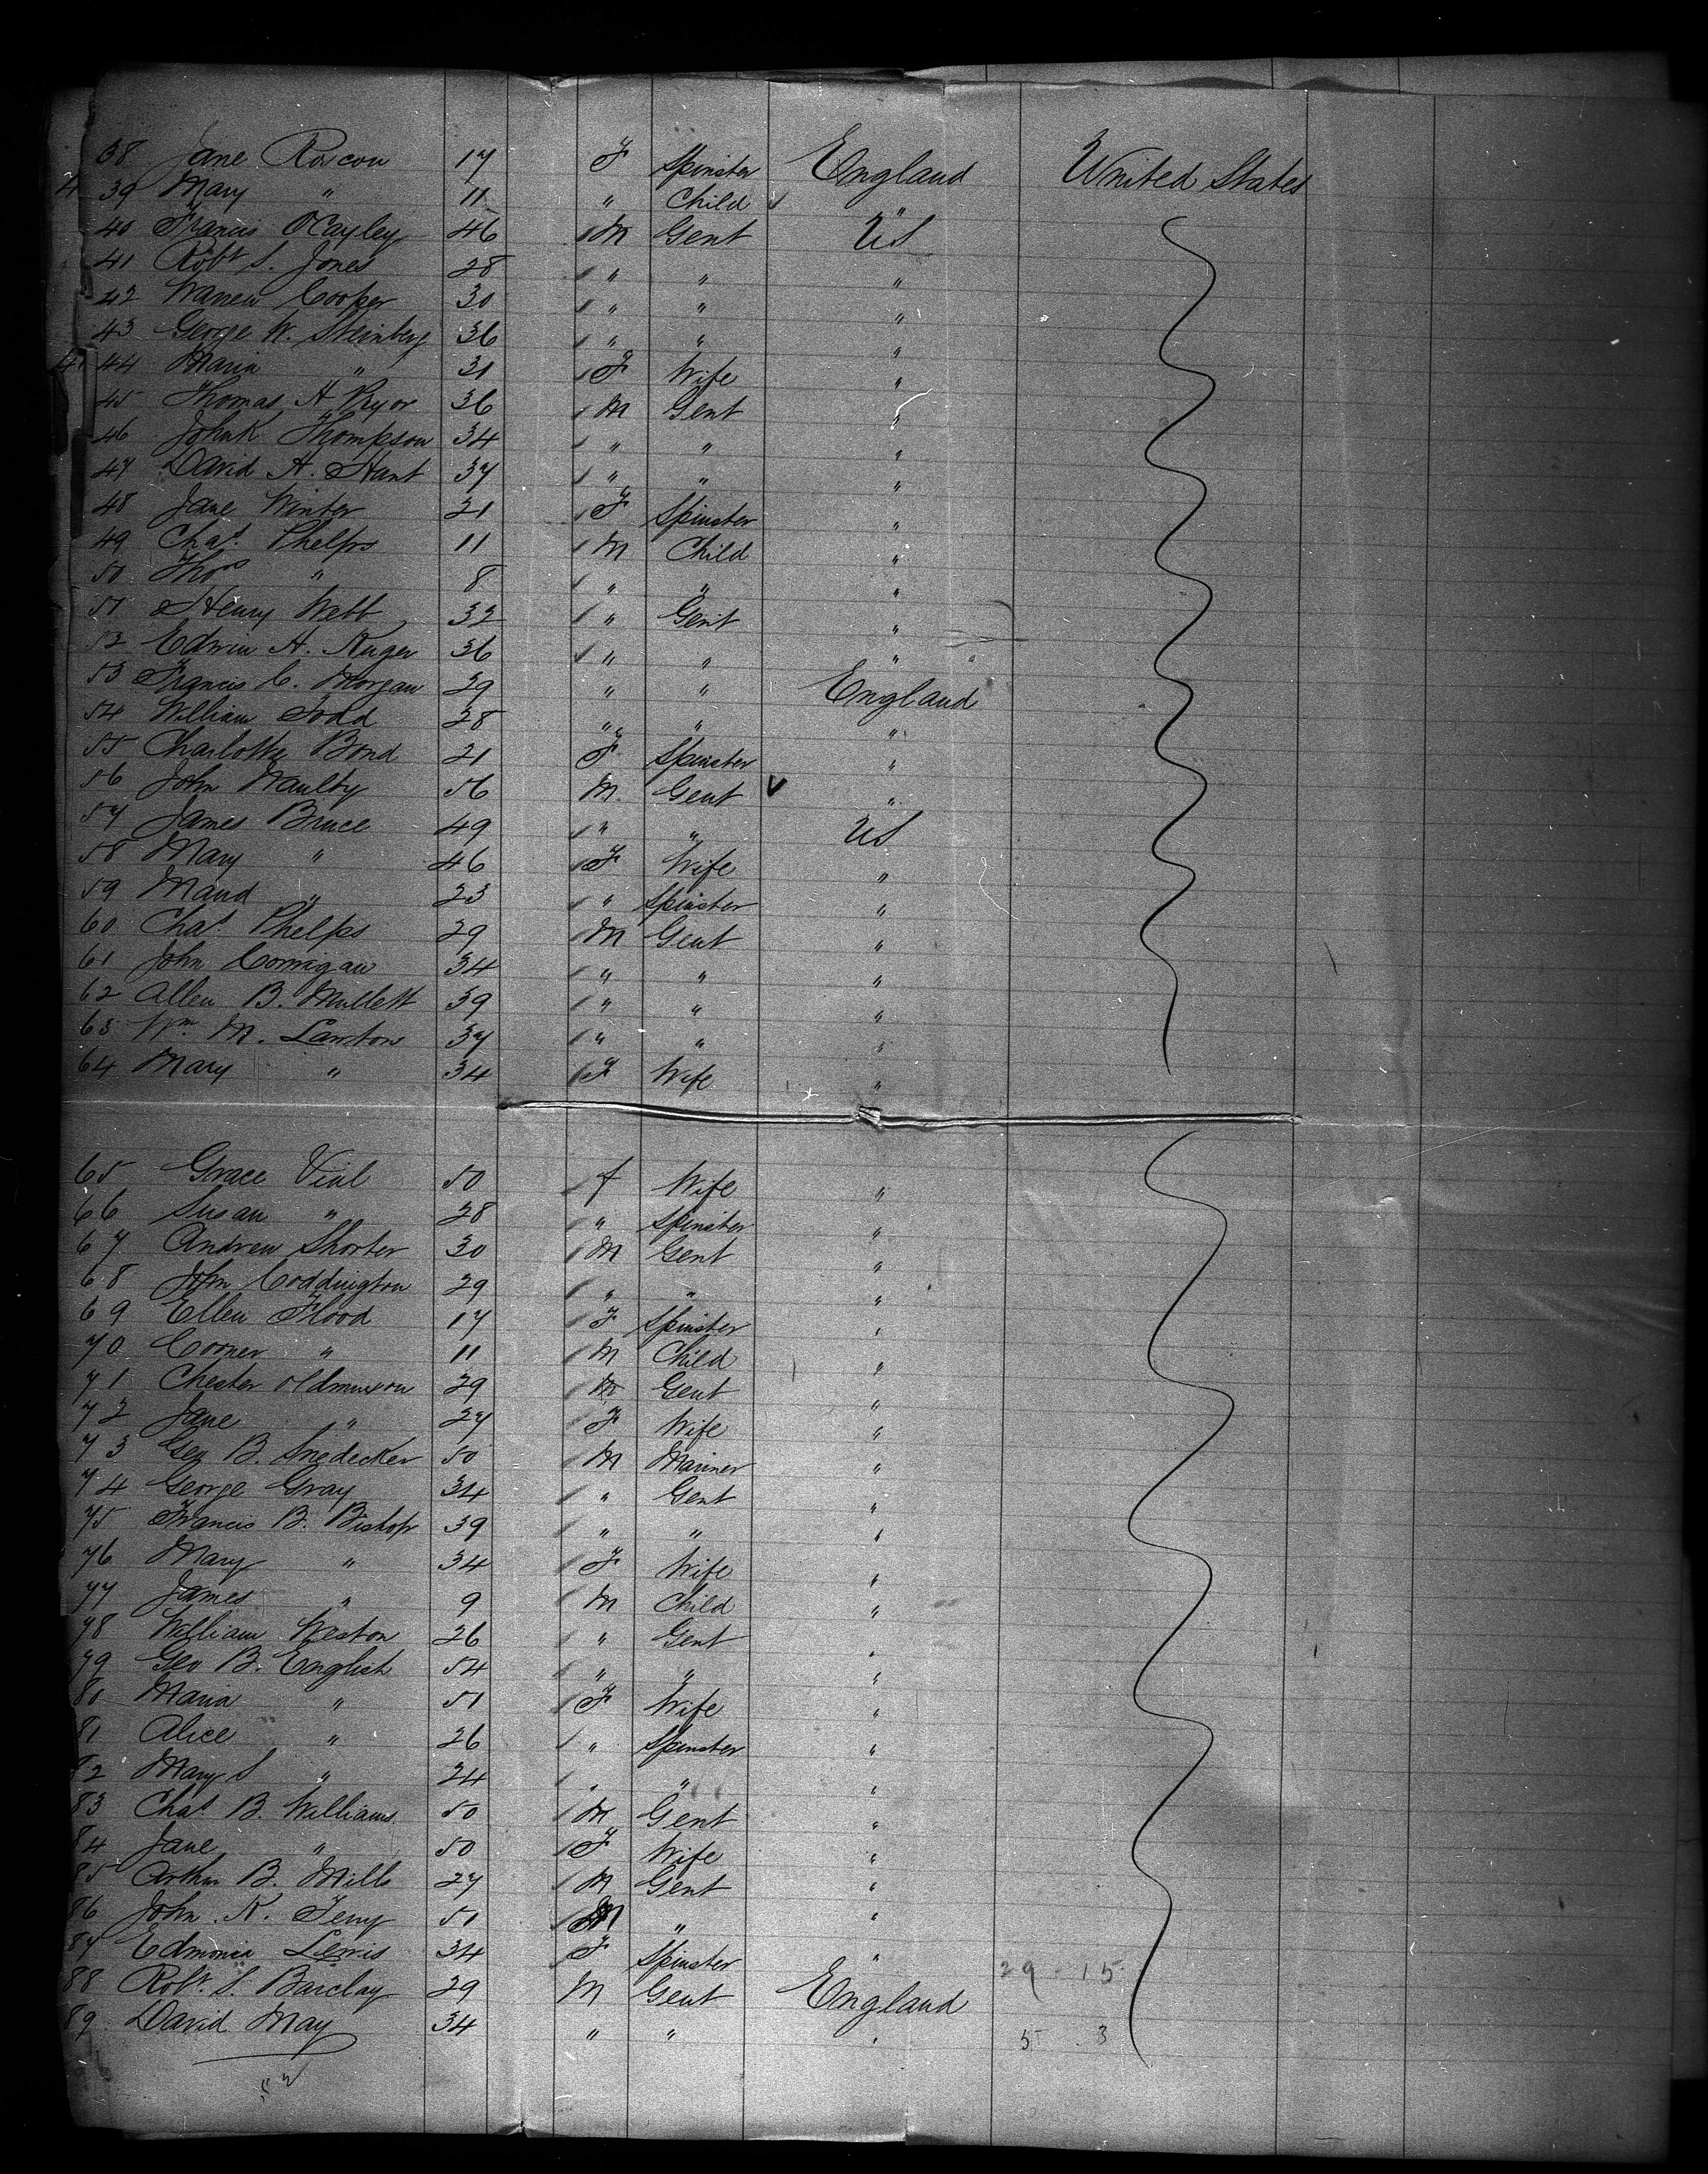 38 Jane Roscow 17 F Spinster England United States
39 Mary " 11 " Child "
40 Francis OCayley 46 M Gent US
41 Robt S. Jones 28 " " "
42 Warren Cooper 30 " " "
43 George W. Steinberg 36 " " "
44 Maria " 31 F Wife "
45 Thomas A Pryor 36 M Gent "
46 John K Thompson 34 " " "
47 David A. Hunt 37 " " "
48 Jane Winter 21 F Spinster "
49 Chas. Phelps 11 M Child "
50 Thos " 8 " " "
51 Henry Webb 32 " Gent "
52 Edwin A. Kruger 36 " " "
53 Francis C. Morgan 29 " " England
54 William Todd 28 " " "
55 Charlotte Bond 21 F Spinster "
56 John 56 M. Gent "
57 James Bruce 49 " " US
58 Mary " 46 F Wife "
59 Maud " 23 " Spinster "
60 Chas. Phelps 29 M Gent "
61 John Corrigan 34 " " "
62 Allen B. Mullett 39 " " "
63 Wm M. Lawton 37 " " "
64 Mary " 34 F Wife "
65 Grace Vial 50 f Wife "
66 Susan " 28 " Spinster "
67 Andrew Shorter 30 M Gent "
68 John Coddington 29 " " "
69 Ellen Flood 17 F Spinster "
70 " 11 M Child "
71 Chester Oldmixon 29 M Gent "
72 Jane " 27 F Wife "
73 Geo B. Snedecker 50 M Mariner "
74 George Gray 34 " Gent "
75 Francis B. Bishop 39 " " "
76 Mary " 34 F Wife "
77 James " 9 M Child "
78 William Weston 26 " Gent "
79 Geo B. English 54 " " "
80 Maria " 51 F Wife "
81 Alice " 26 " Spinster "
82 Mary S " 24 " " "
83 Chas B. Williams. 50 M Gent "
84 Jane " 50 F Wife "
85 Arthur B. Mills 27 M Gent "
86 John K. Terry 51 M " "
87 Edmonia Lewis 34 F Spinster "
88 Robt. S. Barclay 29 M Gent England 29 - 15
89. David May 34 " " " 5 . 3